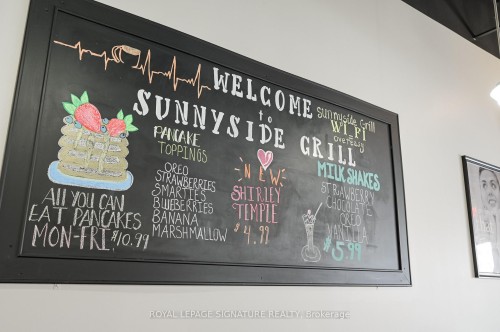 WELCOME
to
SUNNYSIDE GRILL
sunnyside Grill
WIFI
overeasy
PANCAKE
TOPPINGS
OREO
STRAWBERRIES
SMARTIES
BLUEBERRIES
BANANA
MARSHMALLOW
ALL YOU CAN
EAT PANCAKES
MON-FRI $10.99
NEW
SHIRLEY
TEMPLE
$4.99
MILKSHAKES
STRAWBERRY
CHOCOLATE
OREO
VANILLA
$5.99
ROYAL LEPAGE SIGNATURE REALTY, Brokerage